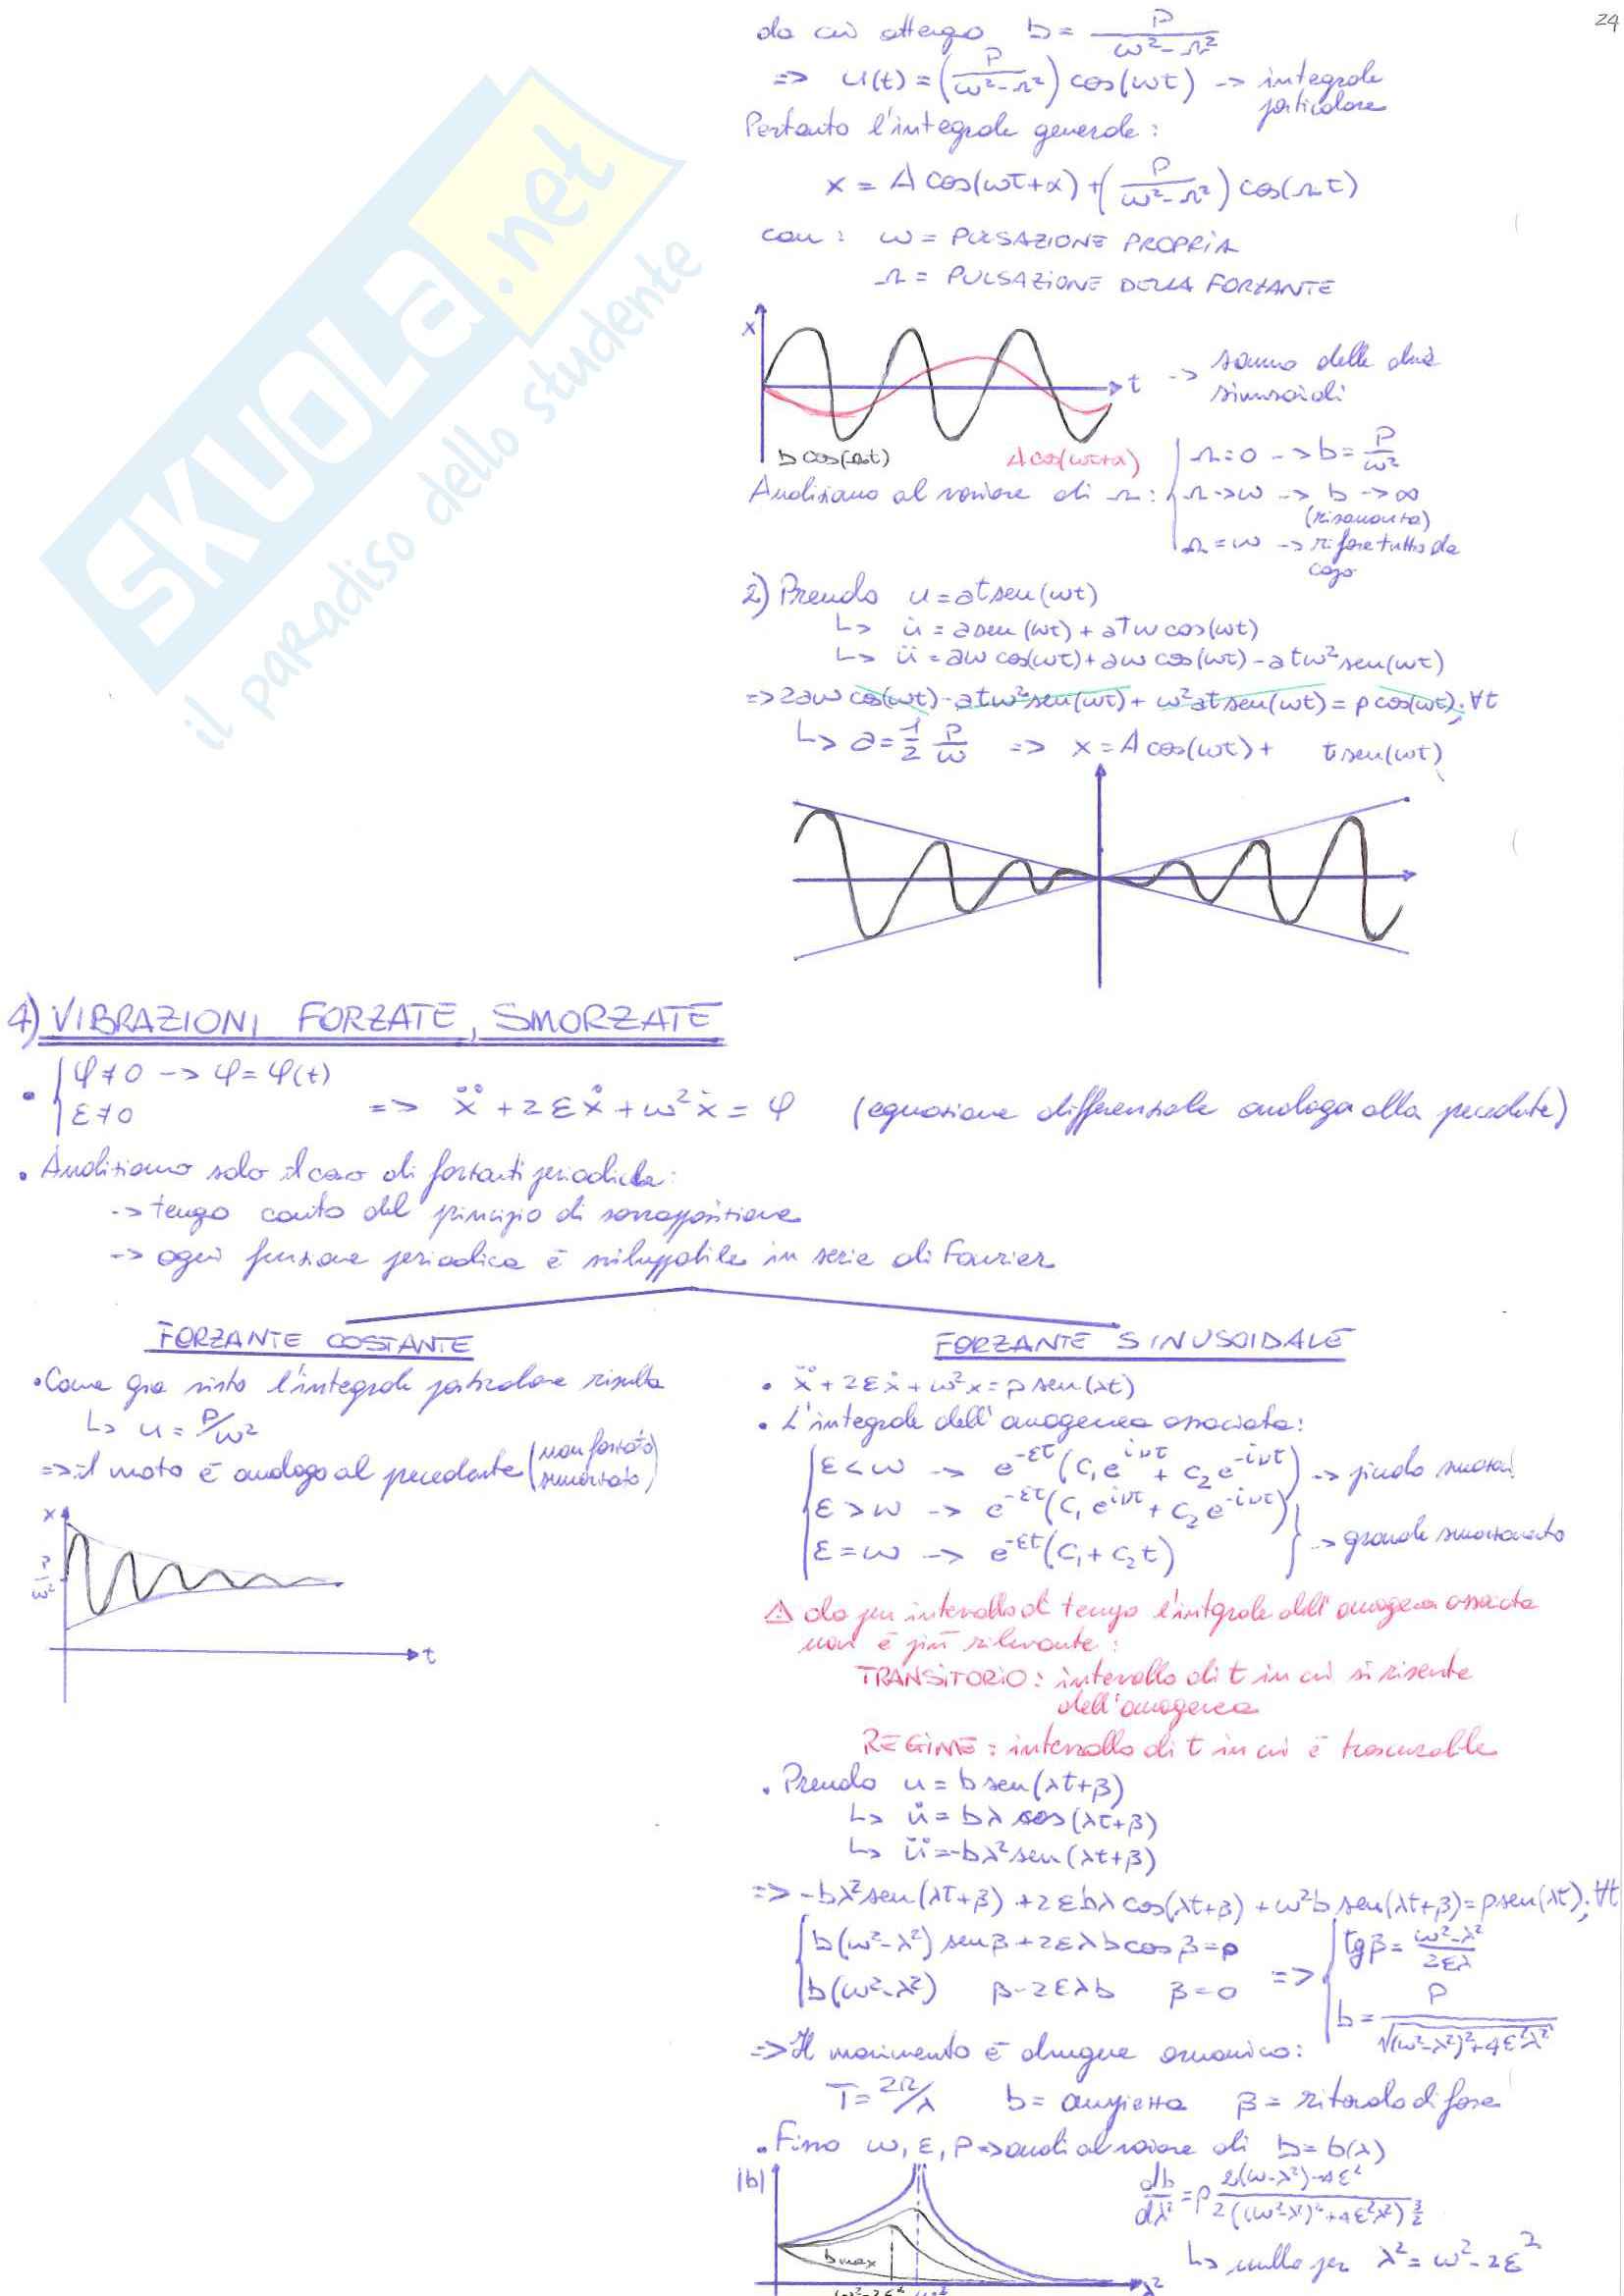 24
da cui ottengo b = P/(ω²-Ω²)
=> u(t) = (P/(ω²-Ω²)) cos(ωt) -> integrale particolare
Pertanto l'integrale generale:
x = A cos(ωt+α) + (P/(ω²-Ω²)) cos(Ωt)
con: ω = PULSAZIONE PROPRIA
Ω = PULSAZIONE DELLA FORZANTE
x
t -> somma delle due sinusoidi
b cos(Ωt) A cos(ωt+α)
Analiziamo al variare di Ω:
Ω=0 -> b = P/ω²
Ω->ω -> b -> ∞
(risonanza)
Ω=ω -> rifare tutto da capo
2) Prendo u = at sen(ωt)
↳ u̇ = a sen(ωt) + atω cos(ωt)
↳ ü = aω cos(ωt) + aω cos(ωt) - atω² sen(ωt)
=> 2aω cos(ωt) - atω² sen(ωt) + ω²at sen(ωt) = p cos(ωt); ∀t
↳ a = 1/2 P/ω => x = A cos(ωt) + t sen(ωt)
SKUOLA.net
il paradiso dello studente
4) VIBRAZIONI FORZATE, SMORZATE
• φ≠0 -> φ = φ(t)
ε≠0 => ẍ + 2εẋ + ω²x = φ (equazione differenziale analoga alla precedente)
• Analiziamo solo il caso di forzanti periodiche:
-> tengo conto del principio di sovrapposizione
-> ogni funzione periodica è sviluppabile in serie di Fourier
FORZANTE COSTANTE
• Come gia visto l'integrale particolare risulta
↳ u = P/ω²
=> il moto è analogo al precedente (non forzato smorzato)
x
P/ω²
t
FORZANTE SINUSOIDALE
• ẍ + 2εẋ + ω²x = p sen(λt)
• L'integrale dell'omogenea associata:
ε<ω -> e^-εt (c₁e^iνt + c₂e^-iνt) -> piccolo
ε>ω -> e^-εt (c₁e^iνt + c₂e^-iνt)
ε=ω -> e^-εt (c₁ + c₂t) -> grande smorzamento
⚠ intervallo di tempo l'integrale dell'omogenea associata
non è più rilevante:
TRANSITORIO: intervallo di t in cui si risente
dell'omogenea
REGIME: intervallo di t in cui è trascurabile
• Prendo u = b sen(λt+β)
↳ u̇ = bλ cos(λt+β)
↳ ü = -bλ² sen(λt+β)
=> -bλ² sen(λt+β) + 2εbλ cos(λt+β) + ω²b sen(λt+β) = p sen(λt); ∀t
b(ω²-λ²) senβ + 2ελb cosβ = p
b(ω²-λ²) β - 2ελb β = 0
=> tgβ = (ω²-λ²)/2ελ
b = P/√((ω²-λ²)²+4ε²λ²)
=> Il movimento è dunque armonico:
T = 2π/λ b = ampiezza β = ritardo di fase
• Fisso ω, ε, P => al variare di b = b(λ)
|b|
bmax
ω²-2ε² ω²
λ²
db/dλ² = P (2(ω-λ²)-4ε²)/(2((ω²-λ²)²+4ε²λ²)^3/2)
↳ nullo per λ² = ω² - 2ε²